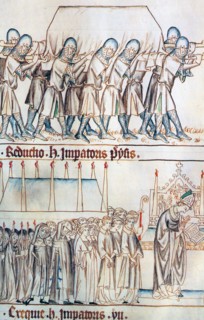 . Reducho . h. Impatoris Pysis .
Exequie . h. Impatoris . vii .